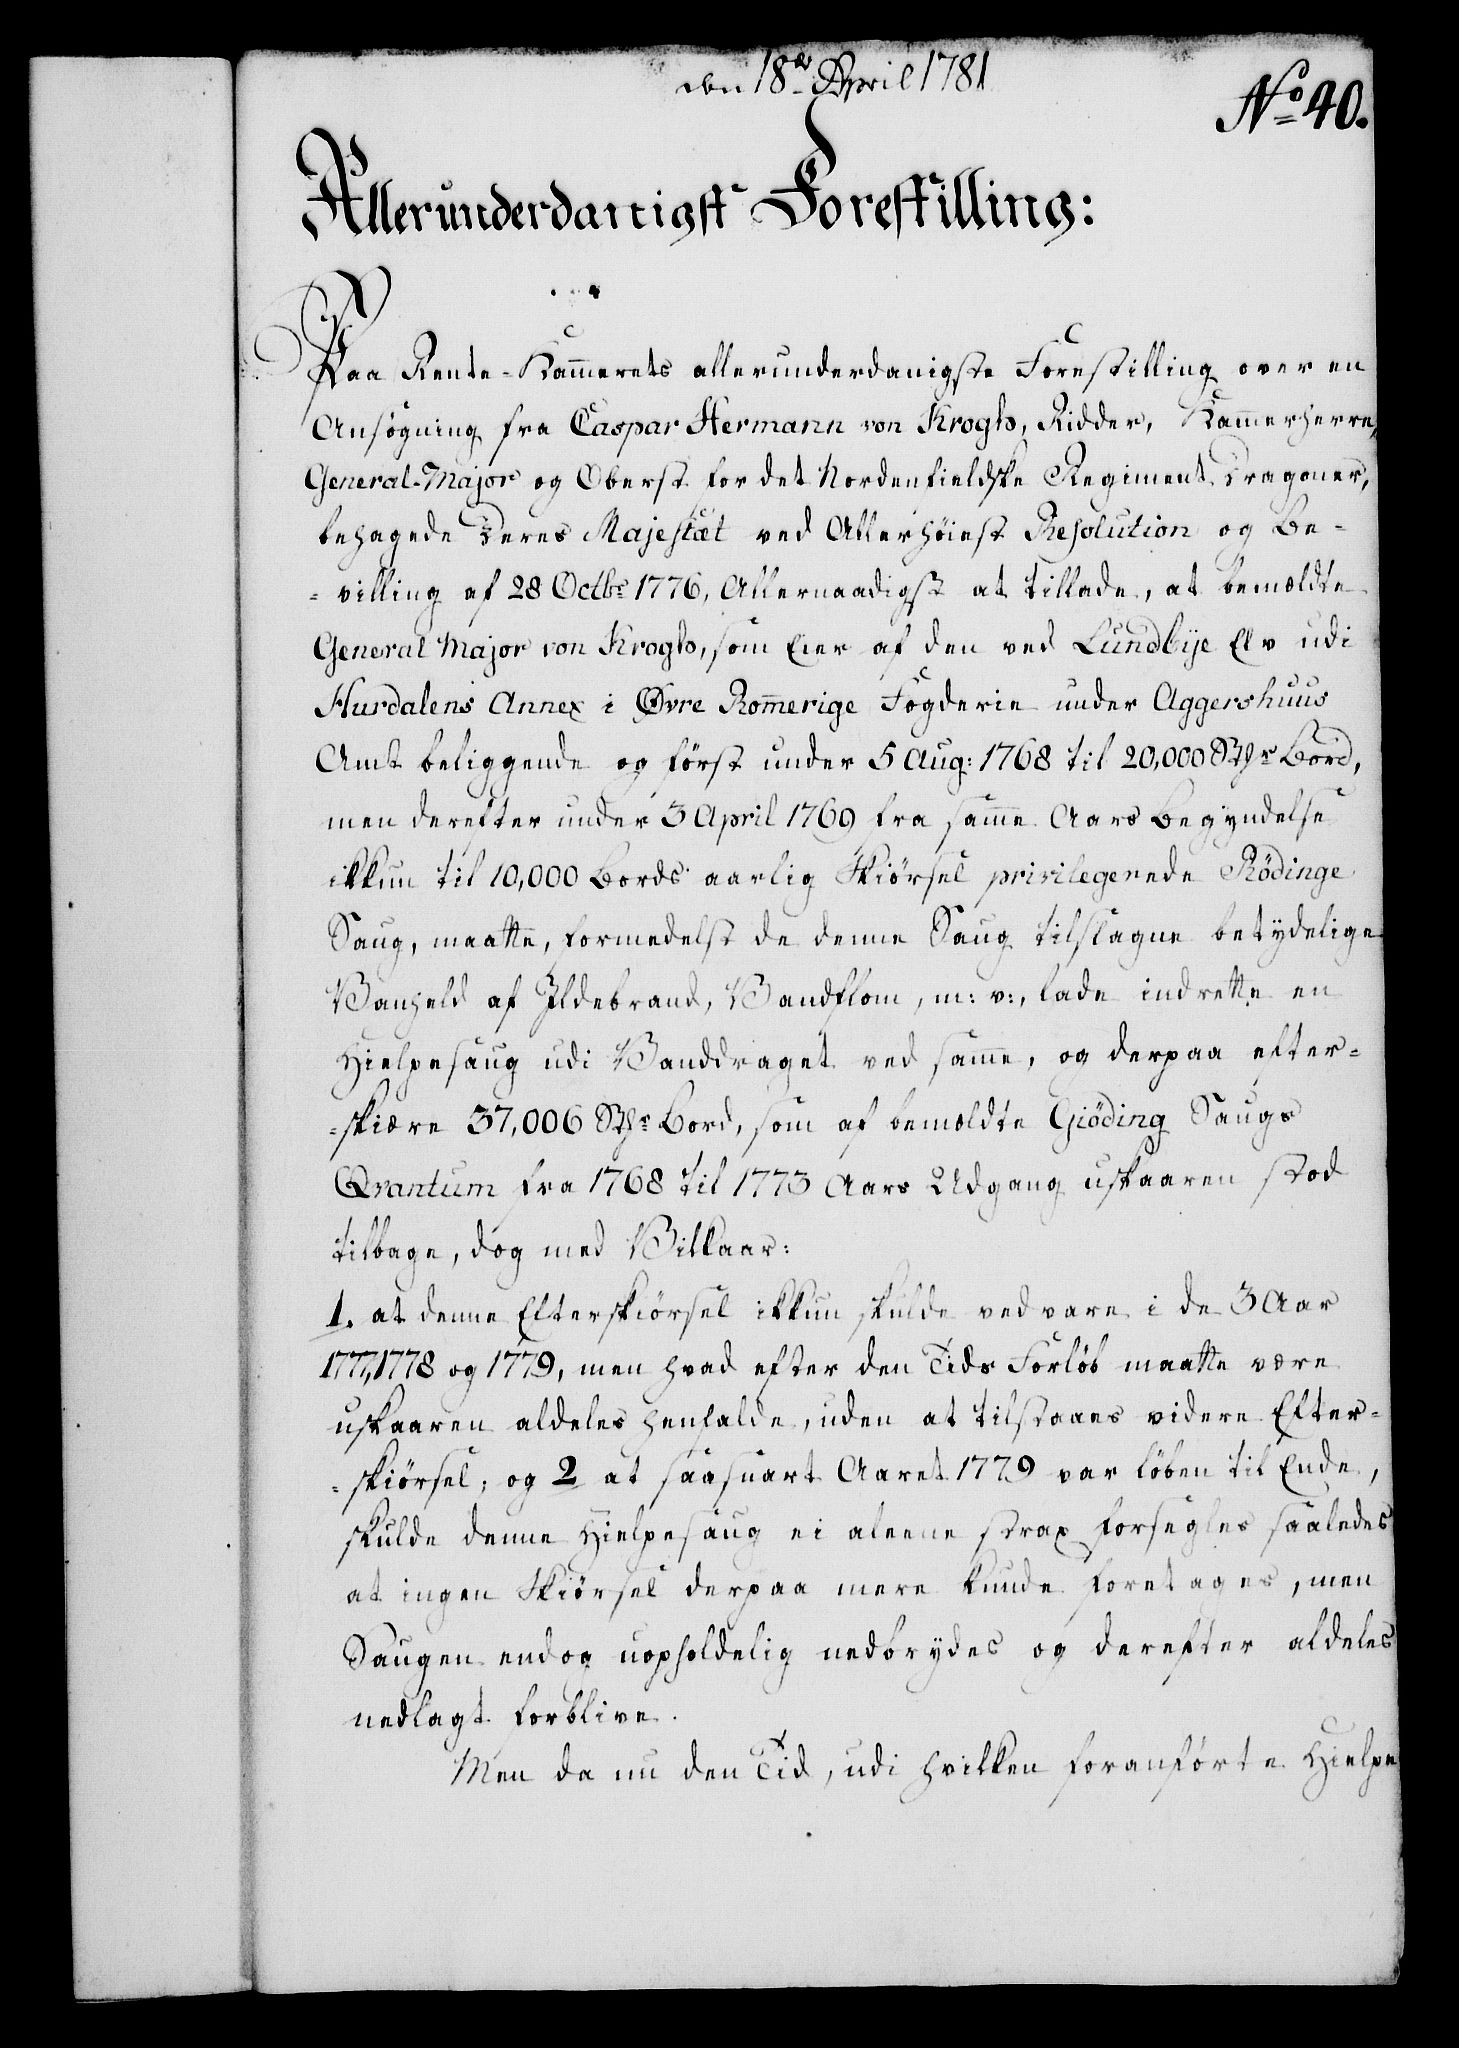 den 18de April 1781
No 40.
Allerunderdanigst Forestilling:
Paa Rente-Kammerets allerunderdanigste Forestilling over en
Ansøgning fra Caspar Hermann von Krogh, Ridder, Kammerherre,
General-Major og Oberst for det Nordenfieldske Regiment Dragoner,
behagede Deres Majestæt ved Allerhöiest Resolution og Be-
-villing af 28 Octbr 1776, Allernaadigst at tillade, at bemældte
General Major von Krogh, som Eier af den ved Lundbÿe Elv udi
Hurdalens Annex i Øvre Rommerige Fogderie under Aggershuus
Amt beliggende og först under 5 Aug: 1768 til 20,000 Stkr Bord,
men derefter under 3 April 1769 fra samme Aars Begyndelse
ikkun til 10,000 Bords aarlig Skiörsel privilegerede Rödinge
Saug, maatte, formedelst de denne Saug tilslagne betÿdelige
Vanheld af Ildebrand, Vandflom, m: v:, lade indrette en
Hielpesaug udi Vanddraget ved samme, og derpaa efter-
-skiære 37,006 Stkr Bord, som af bemældte Giöding Saugs
Qvantum fra 1768 til 1773 Aars Udgang uskaaren stod
tilbage, dog med Vilkaar:
1. at denne Efterskiörsel ikkun skulde vedvare i de 3 Aar
1777, 1778 og 1779, men hvad efter den Tids Forlöb maatte være
uskaaren aldeles henfalde, uden at tilstaaes videre Efter-
-skiörsel; og 2 at saasnart Aaret 1779 var löben til Ende,
skulde denne Hielpesaug ei aleene strax forsegles saaledes
at ingen Skiörsel derpaa mere kunde foretages, men
Saugen endog uopholdelig nedbrydes og derefter aldeles
nedlagt forblive.
Men da nu den Tid, udi hvilken foranförte Hielpe